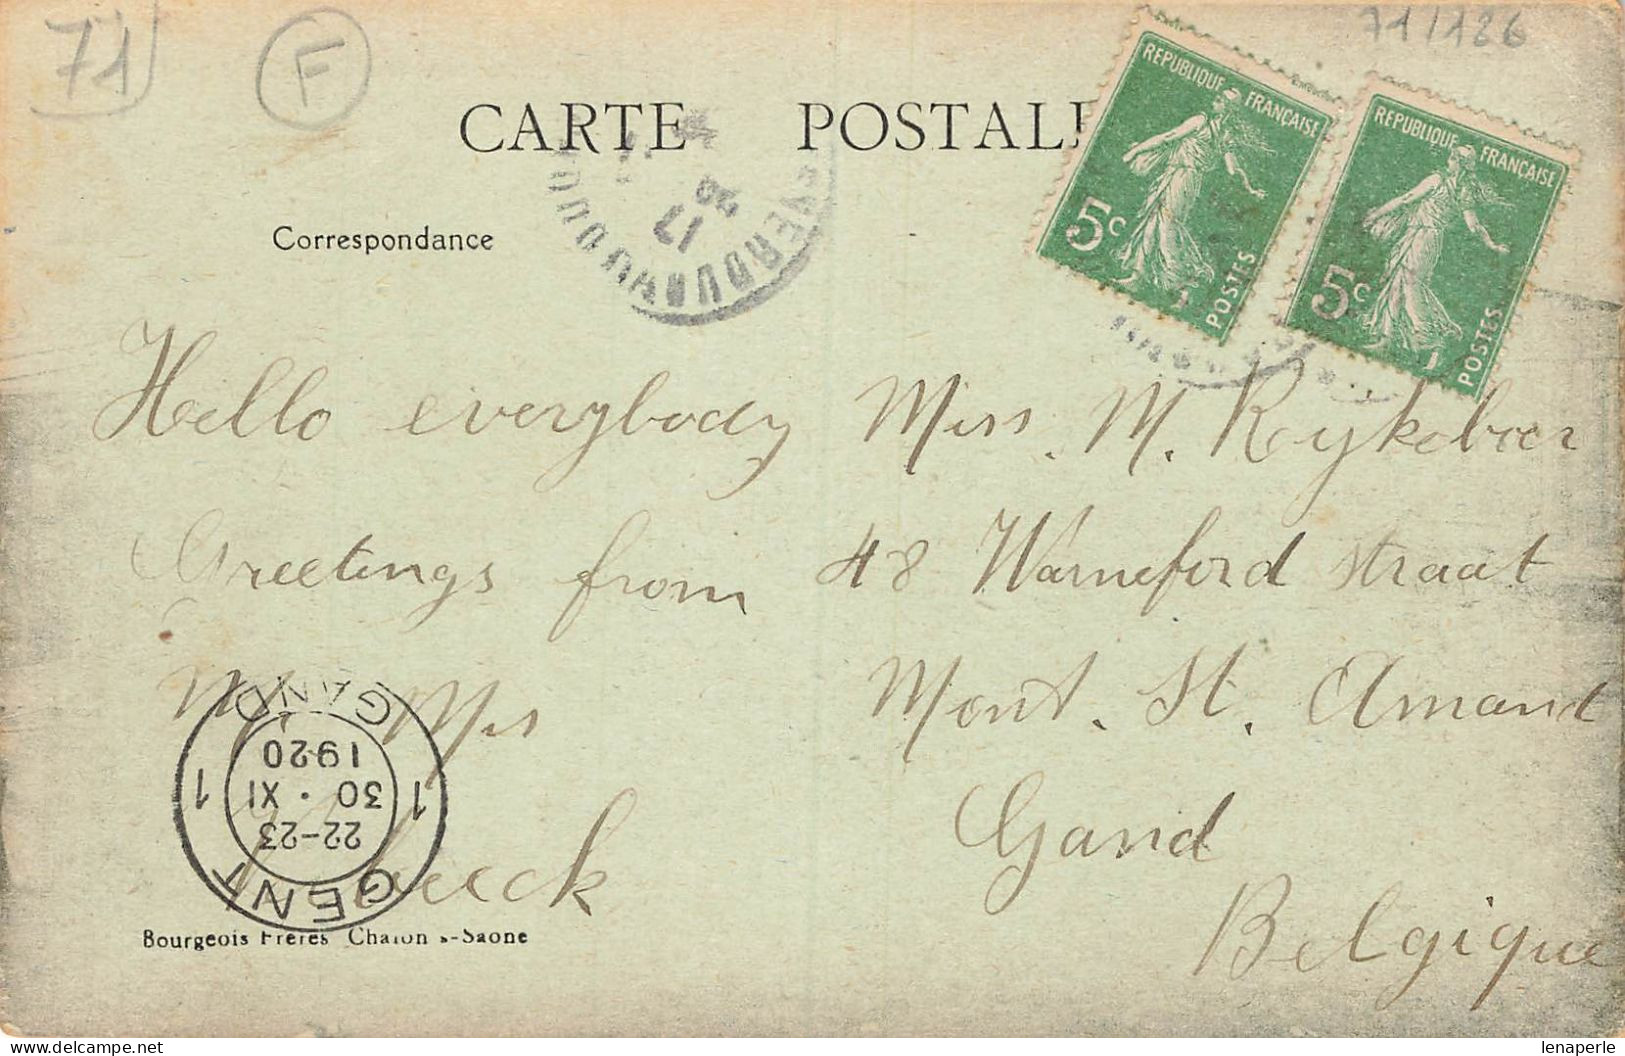 71
F
71/126
CARTE POSTALE
RÉPUBLIQUE FRANÇAISE
5c
POSTES
RÉPUBLIQUE FRANÇAISE
5c
POSTES
17
Correspondance
Hello everybody
Greetings from
Mr. Mrs
Miss. M. Rykeboer
48 Warneford straat
Mont. St. Amand
Gand
Belgique
GENT
22-23
1 30 · XI 1
1920
GAND
Bourgeois Frères Chalon s-Saone
delcampe.net
lenaperle